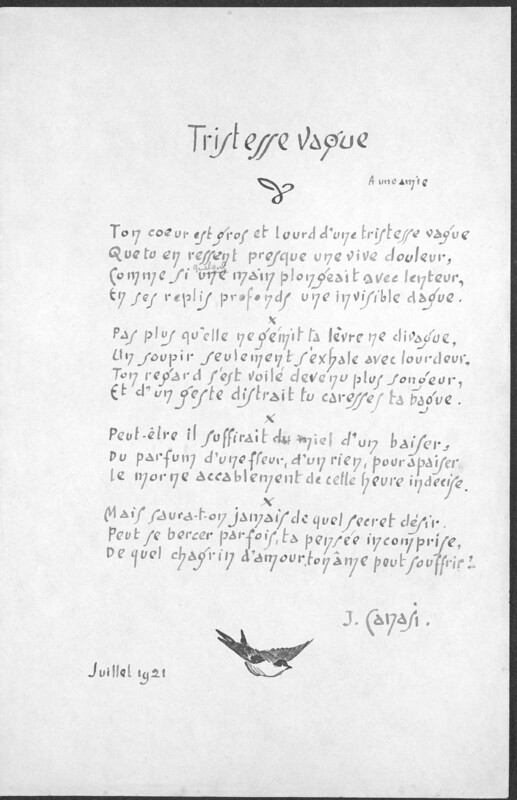 Tristesse vague
A une amie
Ton coeur est gros et lourd d'une tristesse vague
Que tu en ressent presque une vive douleur,
Comme si une main plongeait avec lenteur,
En ses replis profonds une invisible dague.
x
Pas plus qu'elle ne gémit ta lèvre ne divague,
Un soupir seulement s'exhale avec lourdeur.
Ton regard s'est voilé devenu plus songeur,
Et d'un geste distrait tu caresses ta bague.
x
Peut-être il suffirait du miel d'un baiser,
Du parfum d'une fleur, d'un rien, pour apaiser
Le morne accablement de cette heure indécise.
x
Mais saura-t-on jamais de quel secret désir
Peut se bercer parfois, ta pensée incomprise,
De quel chagrin d'amour, ton âme peut souffrir?
J. Canasi.
Juillet 1921